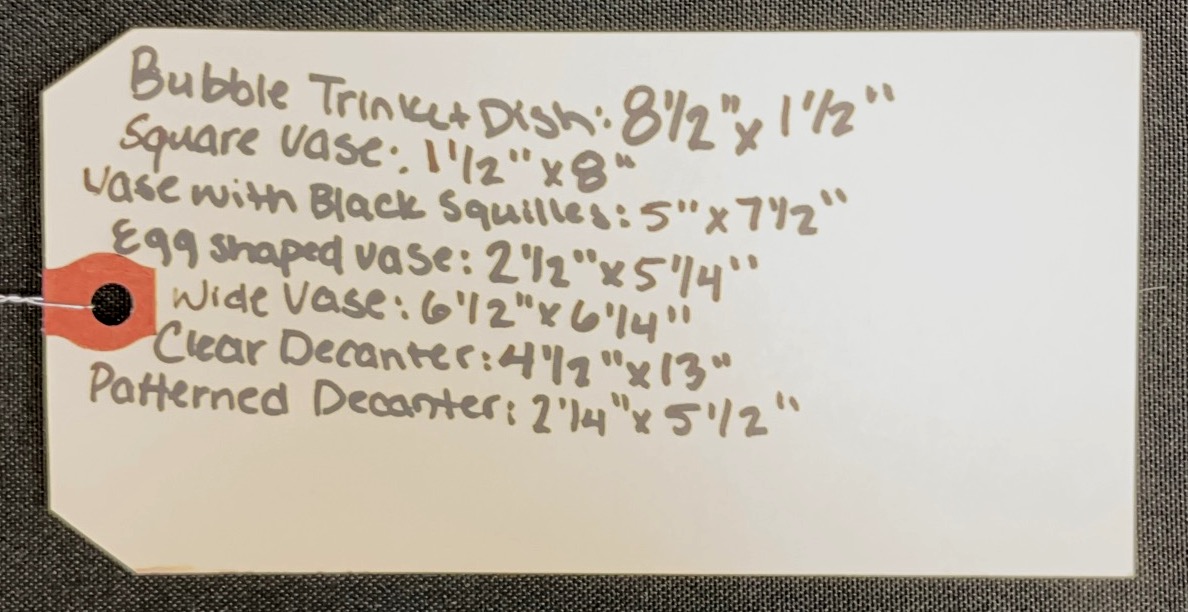 Bubble Trinket Dish: 8 1/2" x 1 1/2"
Square Vase: 1 1/2" x 8"
Vase with Black Squilles: 5" x 7 1/2"
Egg shaped vase: 2 1/2" x 5 1/4"
Wide Vase: 6 1/2" x 6 1/4"
Clear Decanter: 4 1/2" x 13"
Patterned Decanter: 2 1/4" x 5 1/2"